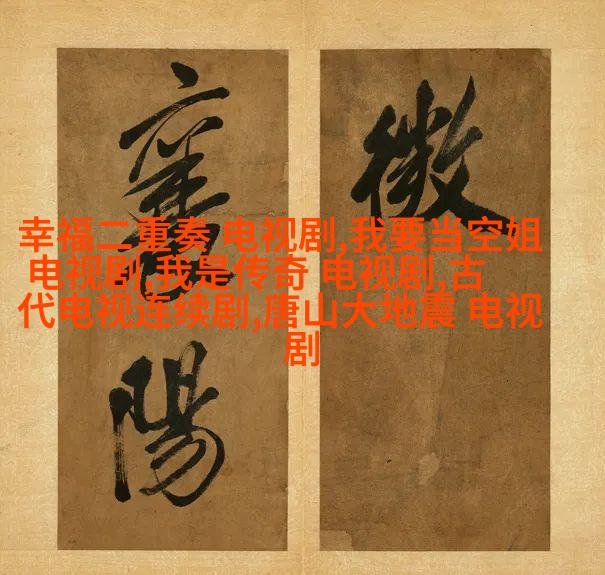 幸福二重奏 电视剧,我要当空姐
电视剧,我是传奇 电视剧,古
代电视连续剧,唐山大地震 电视
剧
微
陽